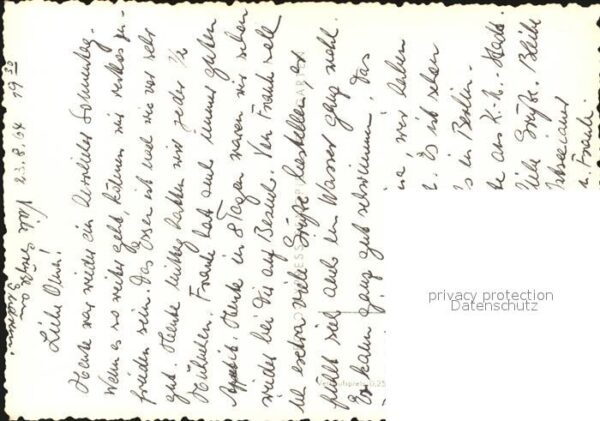 23.8.64 19 30
Liebe Omi!
Heute war wieder ein herrlicher Sonnentag.
Wenn es so weiter geht, können wir restlos zu-
frieden sein. Das Essen ist und war sehr
gut. Heute mittag hatten wir jeder 1/2
Hühnchen. Frank hat auch immer guten
Appetit. Heute in 8 Tagen waren wir schon
wieder bei Dir auf Besuch. Von Frank soll
ich extra viele Grüße bestellen, er
fühlt sich auch im Wasser ganz wohl.
Er kann ganz gut schwimmen, das
wir haben
Es ist schon
in Berlin.
aus K.-M.-Stadt
Grüße. Bleibe
Frank.
privacy protection
Datenschutz